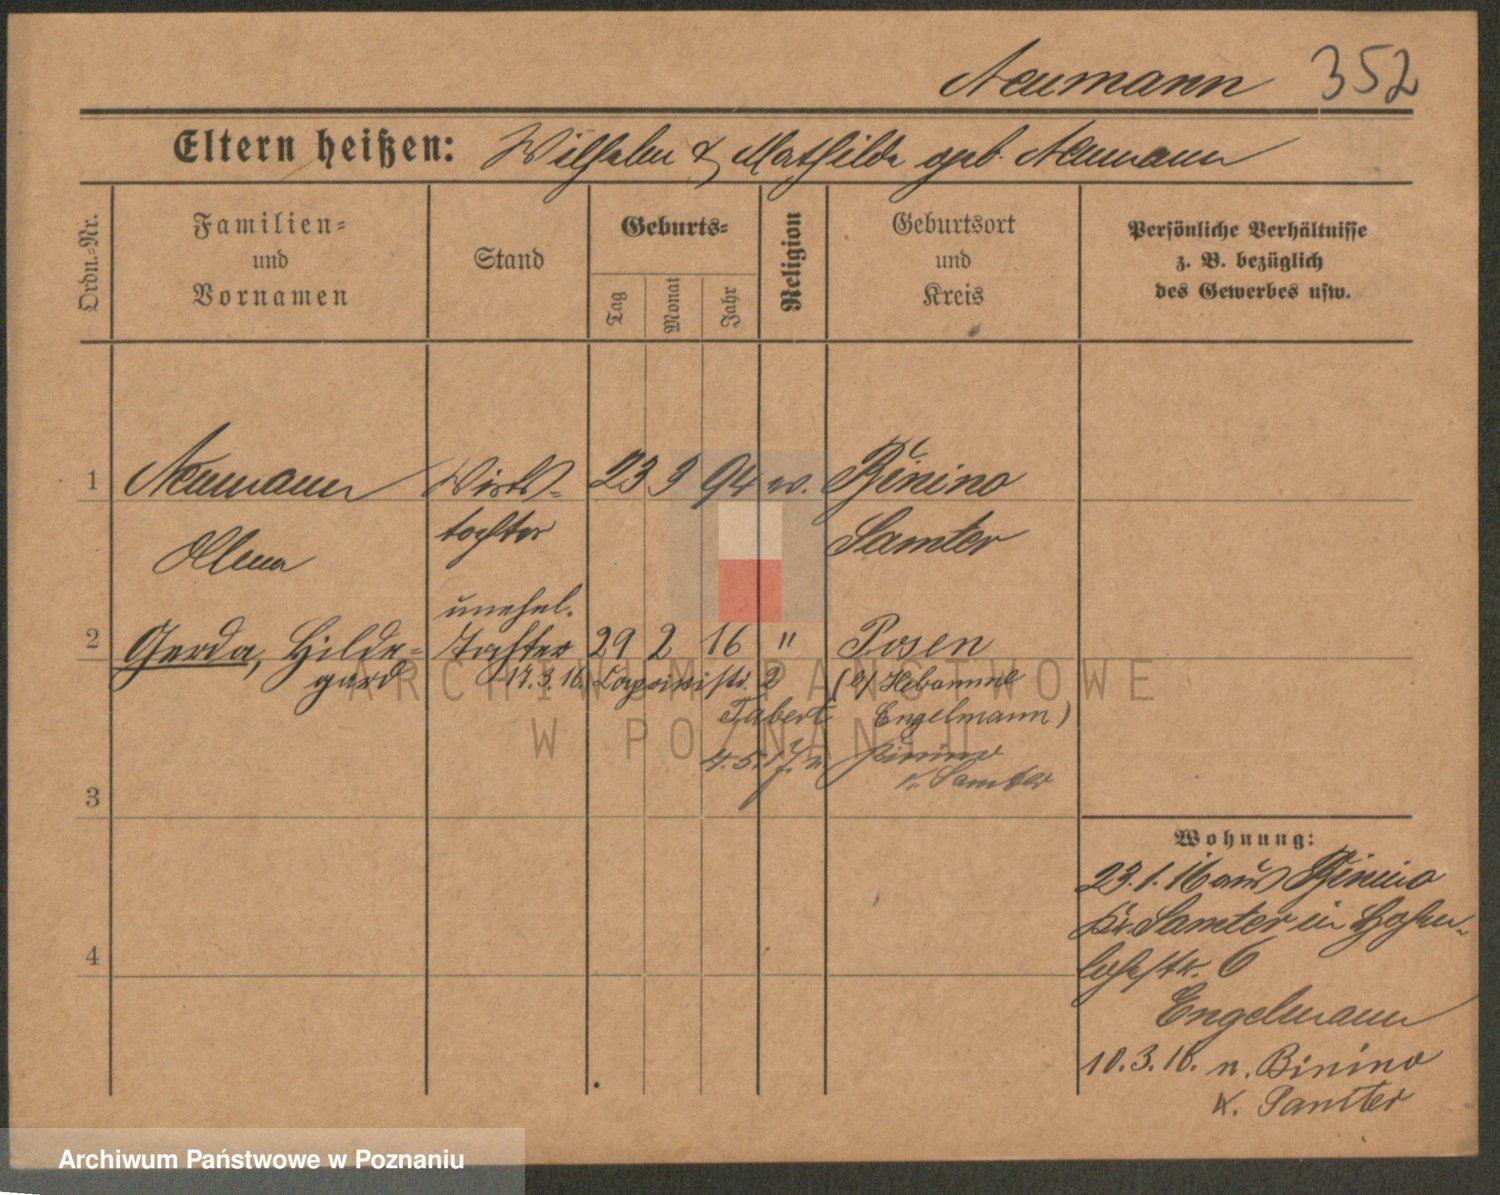 Neumann 352
Eltern heißen: Wilhelm & Mathilde geb. Neumann
Ordn.-Nr.
Familien-
und
Vornamen
Stand
Geburts-
Tag
Monat
Jahr
Religion
Geburtsort
und
Kreis
Persönliche Verhältnisse
z. B. bezüglich
des Gewerbes usw.
1 Neumann Wirts- 23 3 94 Binino
tochter Samter
unehel.
2 Gerda, Hilde- Tochter 29 2 16 " Posen
gard 17.3.16. 2 (b/ Hebamme
Tabert Engelmann)
4.5.17. n. Binino
K. Samter
3
4
Wohnung:
23.1.16 aus Binino
Kr. Samter in Hohen-
lohestr. 6
Engelmann
10.3.16. n. Binino
K. Samter
ARCHIWUM PAŃSTWOWE
W POZNANIU
Archiwum Państwowe w Poznaniu